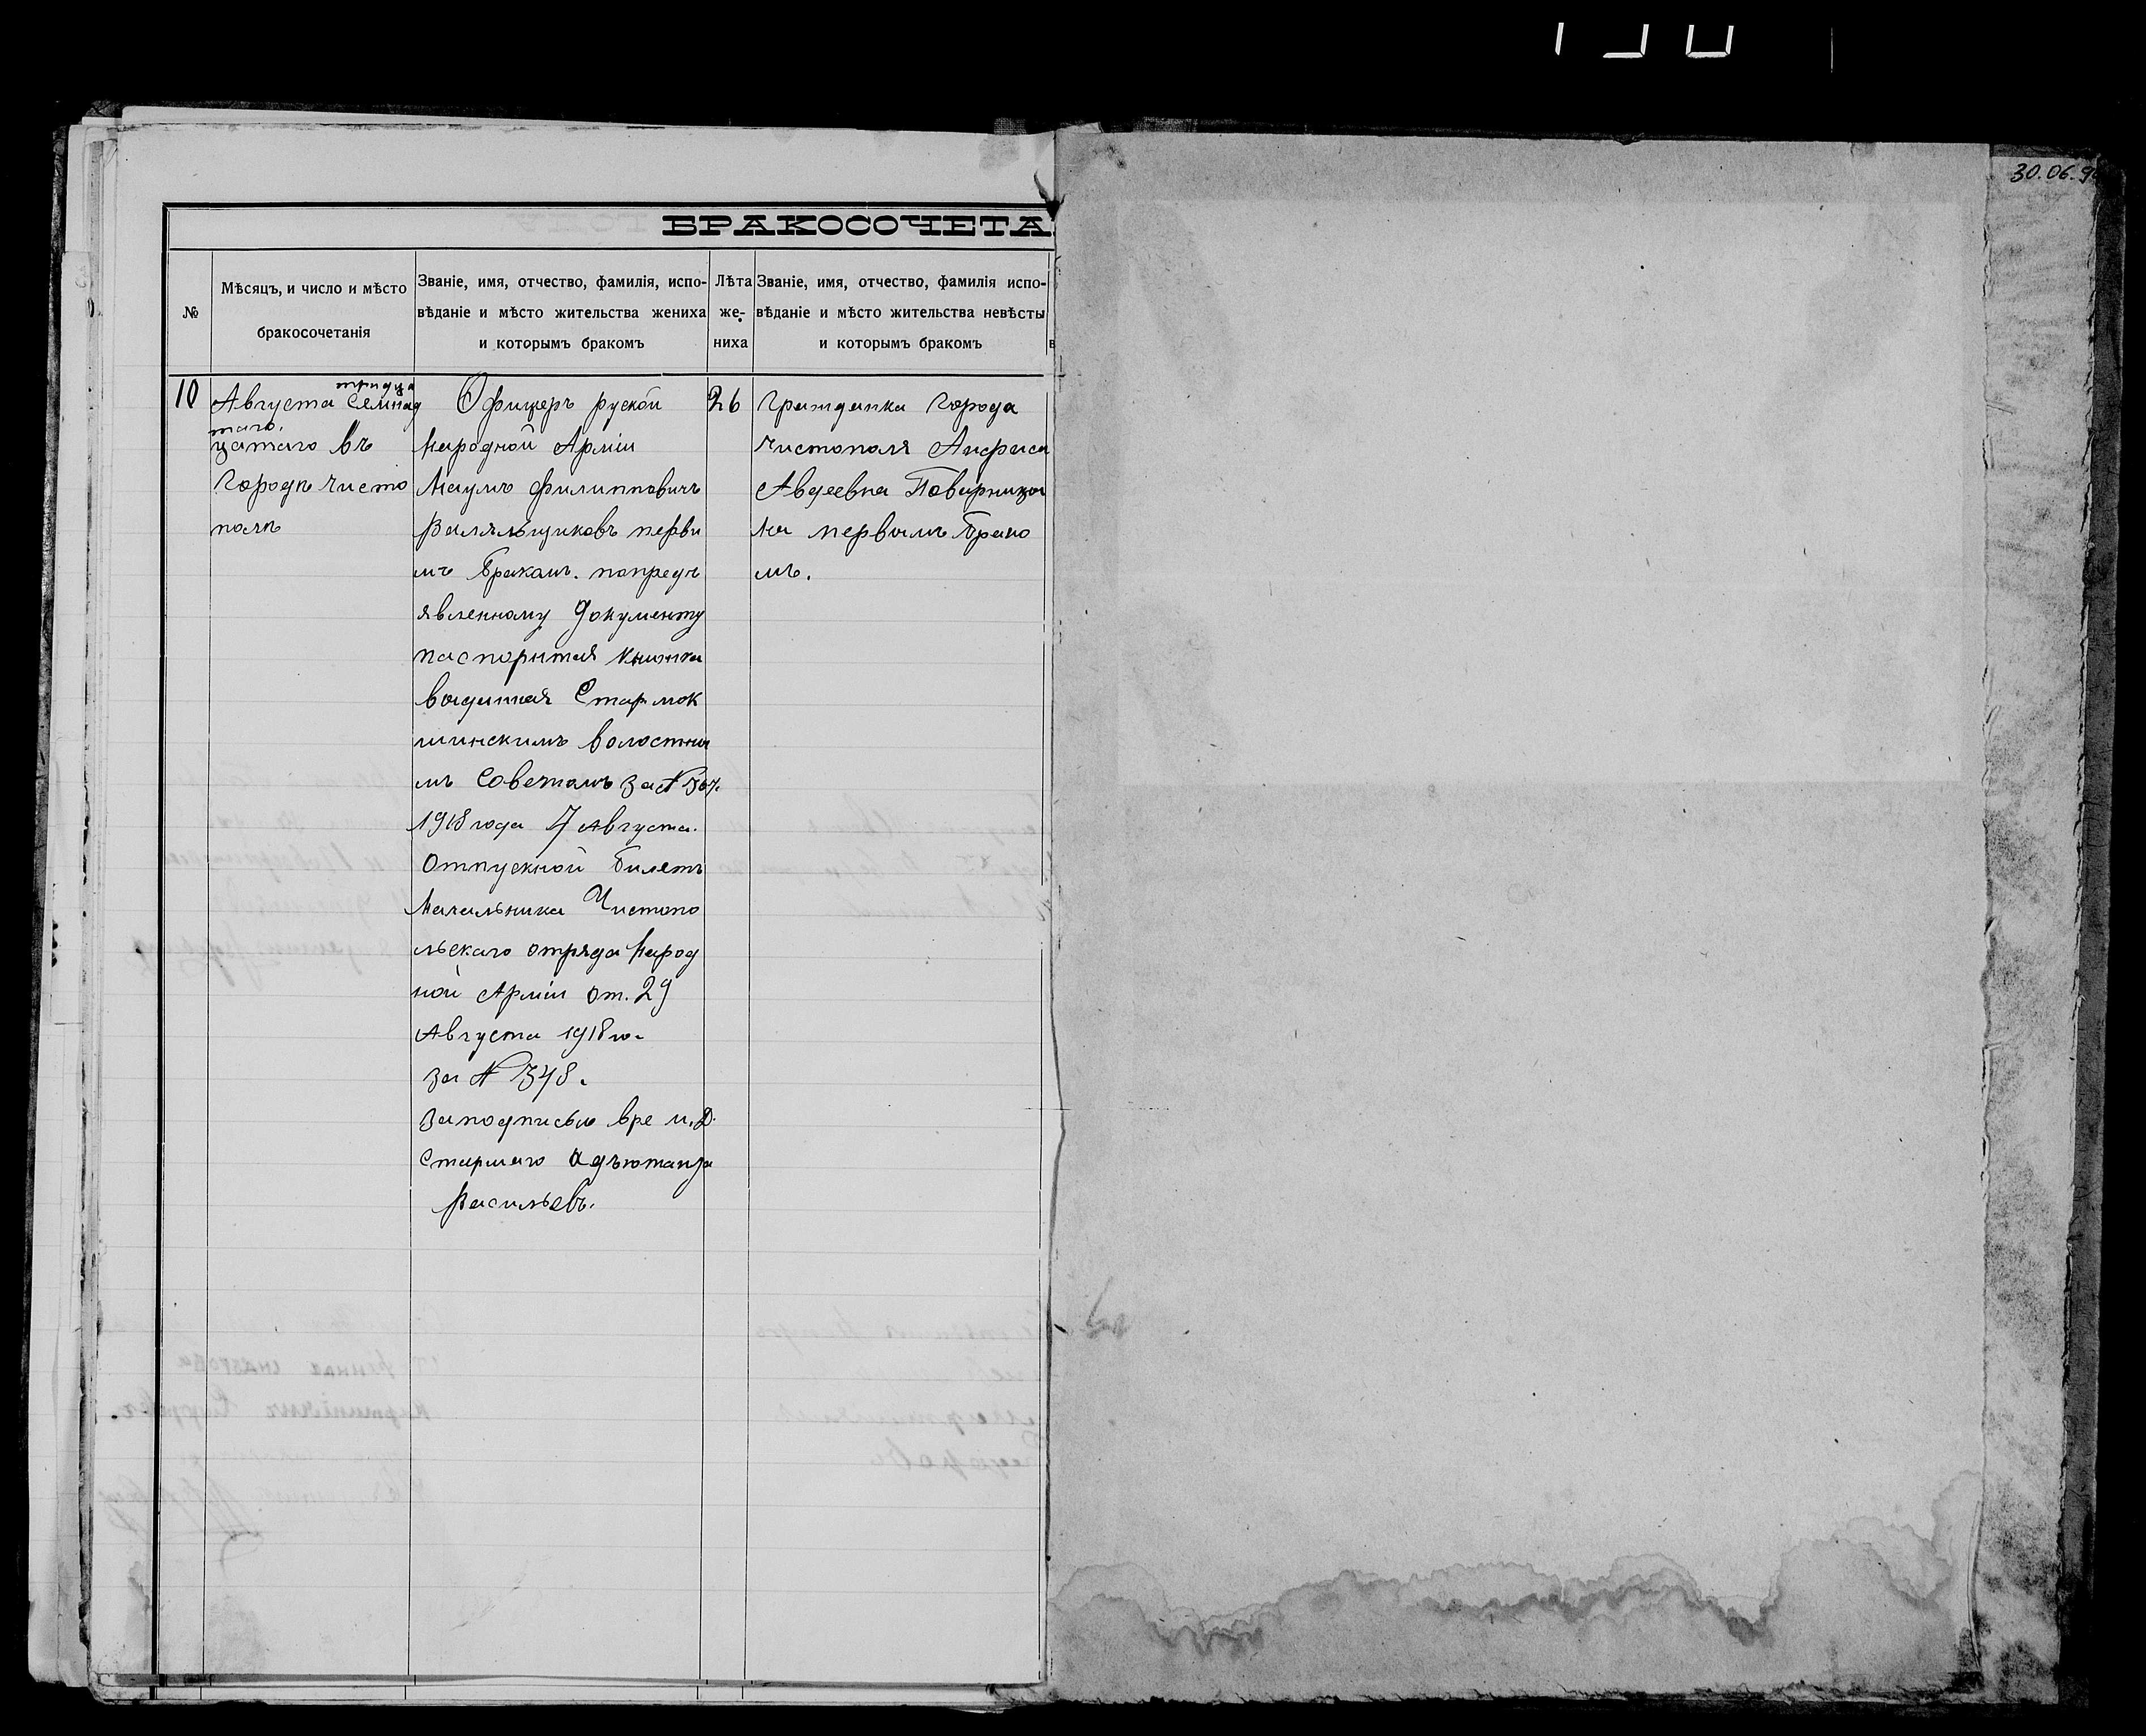 30.06.9
БРАКОСОЧЕТА
№
Мѣсяцъ, и число и мѣсто
бракосочетанія
Званіе, имя, отчество, фамилія, испо-
вѣданіе и мѣсто жительства жениха
и которымъ бракомъ
Лѣта
же-
ниха
Званіе, имя, отчество, фамилія испо-
вѣданіе и мѣсто жительства невѣсты
и которымъ бракомъ
10
тридца
Августа семнад
таго.
цатаго въ
Городѣ Чисто
полѣ
Офицеръ руской
Народной Арміи
Наумъ Филипповичъ
Валяльщиковъ перви
мъ Бракомъ. попредъ
явленному Документу
паспортная Книжка
выданная Стар мок
шинскимъ волостны
мъ Советомъ за №
1918 года 7 Августа.
Отпускной Билетъ
Начальника Чистопо
льскаго отряда Народ
ной Арміи от. 29
Августа 1918 го.
за № 348.
Заподписью вре и.Д.
Старшаго Адъютанта
Васильевъ.
26
Гражданка Города
Чистополя Анфиса
Авдеевна Поварницы
на первымъ Брако
мъ.